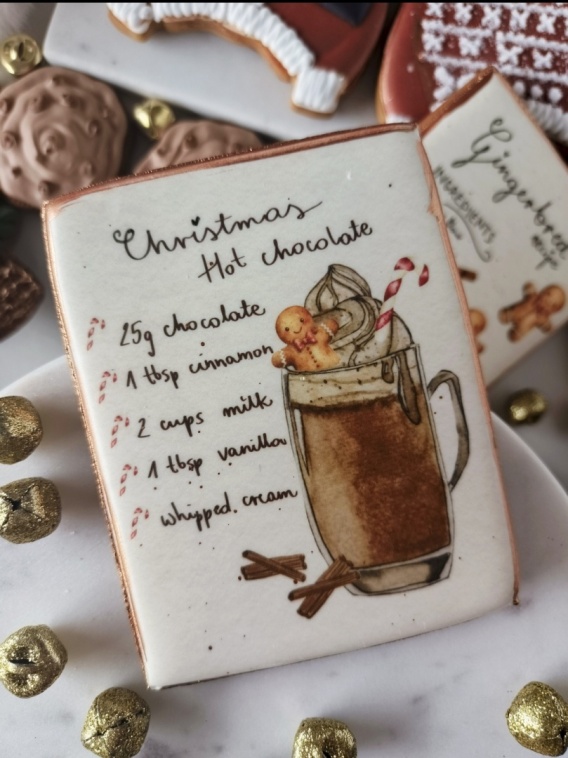 Christmas
Hot chocolate
25g chocolate
1 tbsp cinnamon
2 cups milk
1 tbsp vanilla
whipped cream
Gingerbread
INGREDIENTS